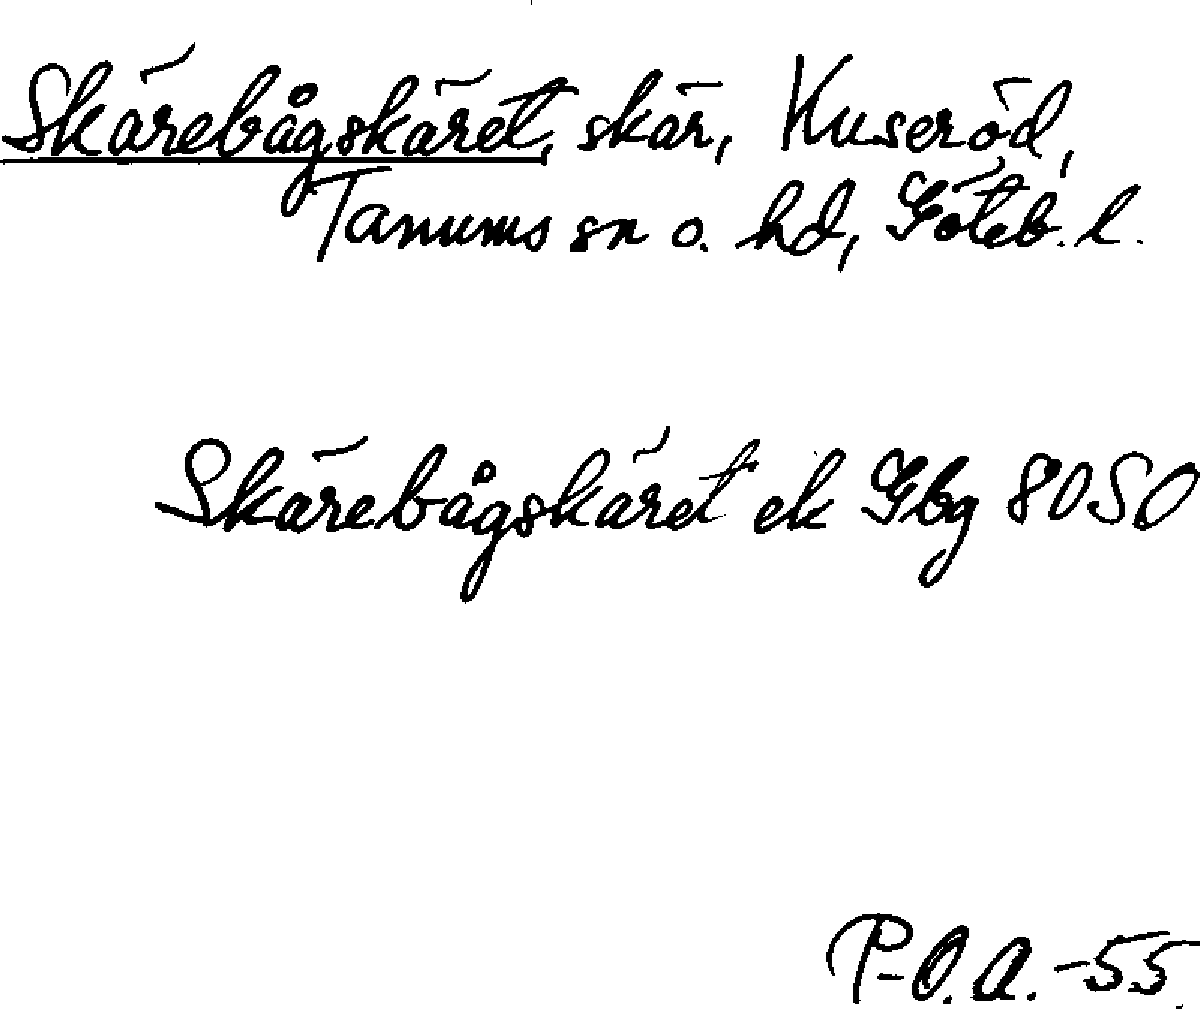 Skärebågskäret, skär, Kuseröd,
Tanums sn o. hd, Göteb. l.
Skärebågskäret ek Gbg 8050
P-O.A.-55.